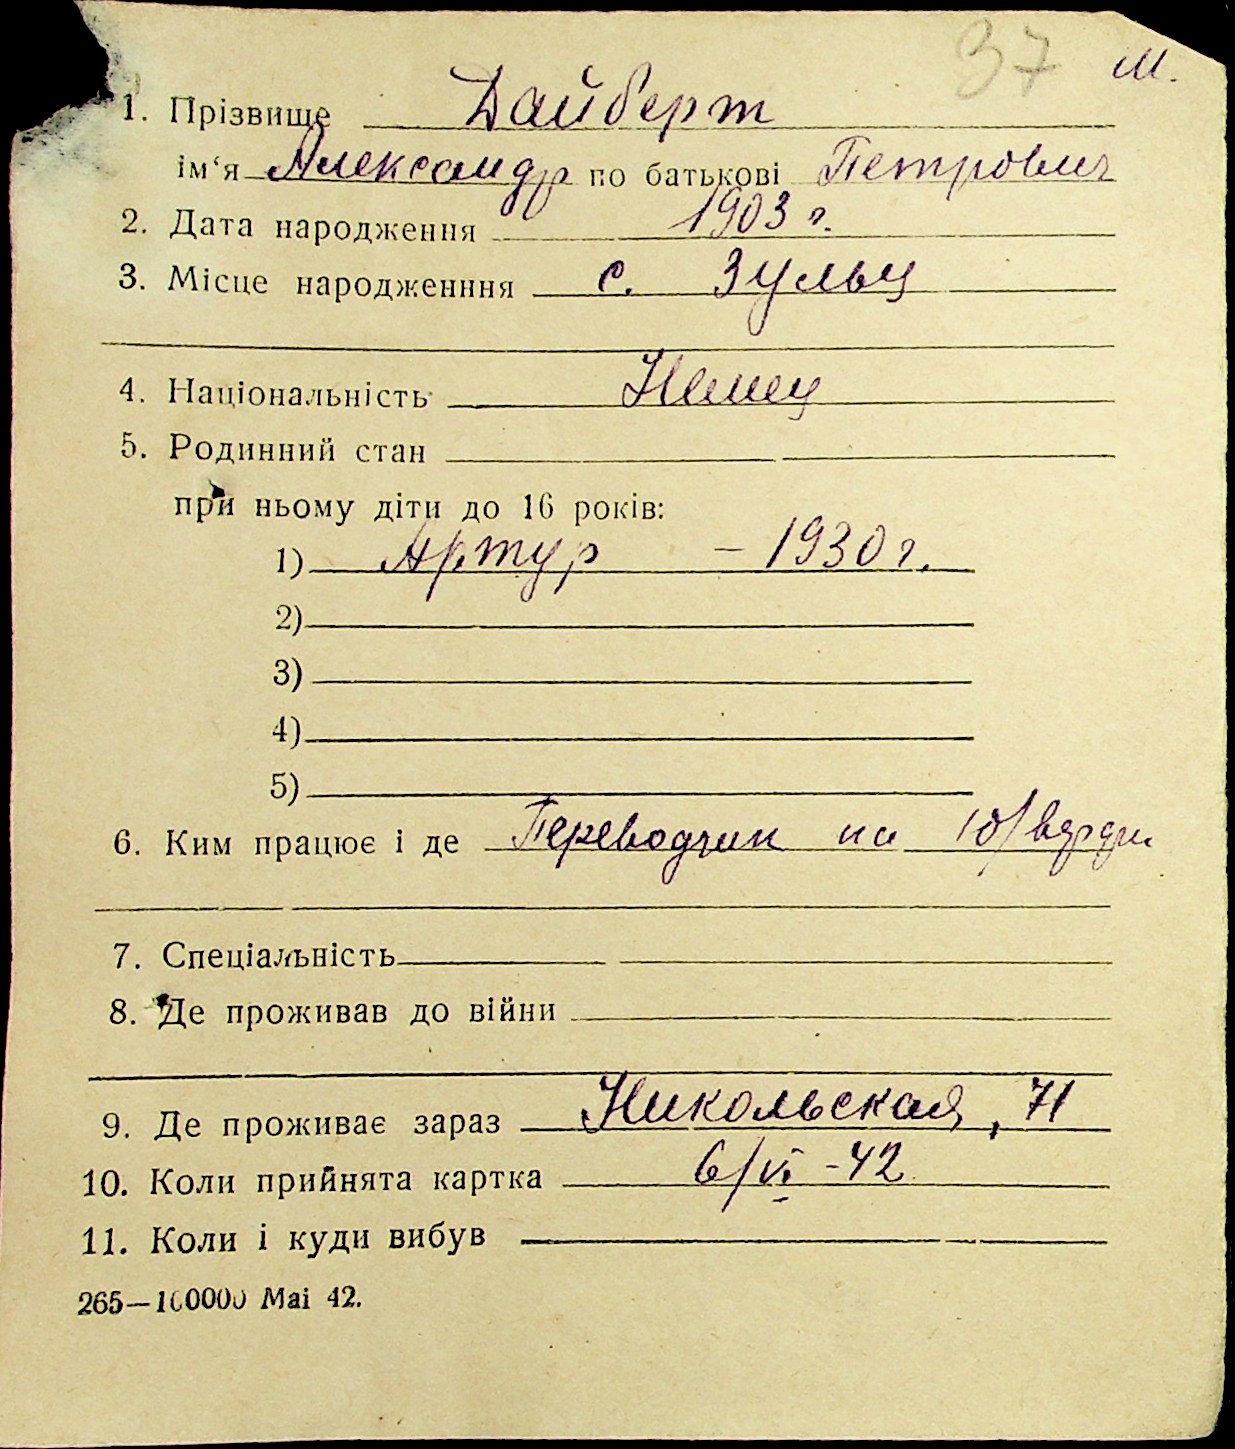 37 М.
1. Прізвище Дайберт
ім‘я Александр по батькові Петрович
2. Дата народження 1903 г.
3. Місце народженння с. Зульц
4. Національність Немец
5. Родинний стан
при ньому діти до 16 років:
1) Артур – 1930 г.
2)
3)
4)
5)
6. Ким працює і де Переводчик на
7. Спеціальність
8. Де проживав до війни
9. Де проживає зараз Никольская, 71
10. Коли прийнята картка 6/VI-42
11. Коли і куди вибув
265—100000 Mai 42.